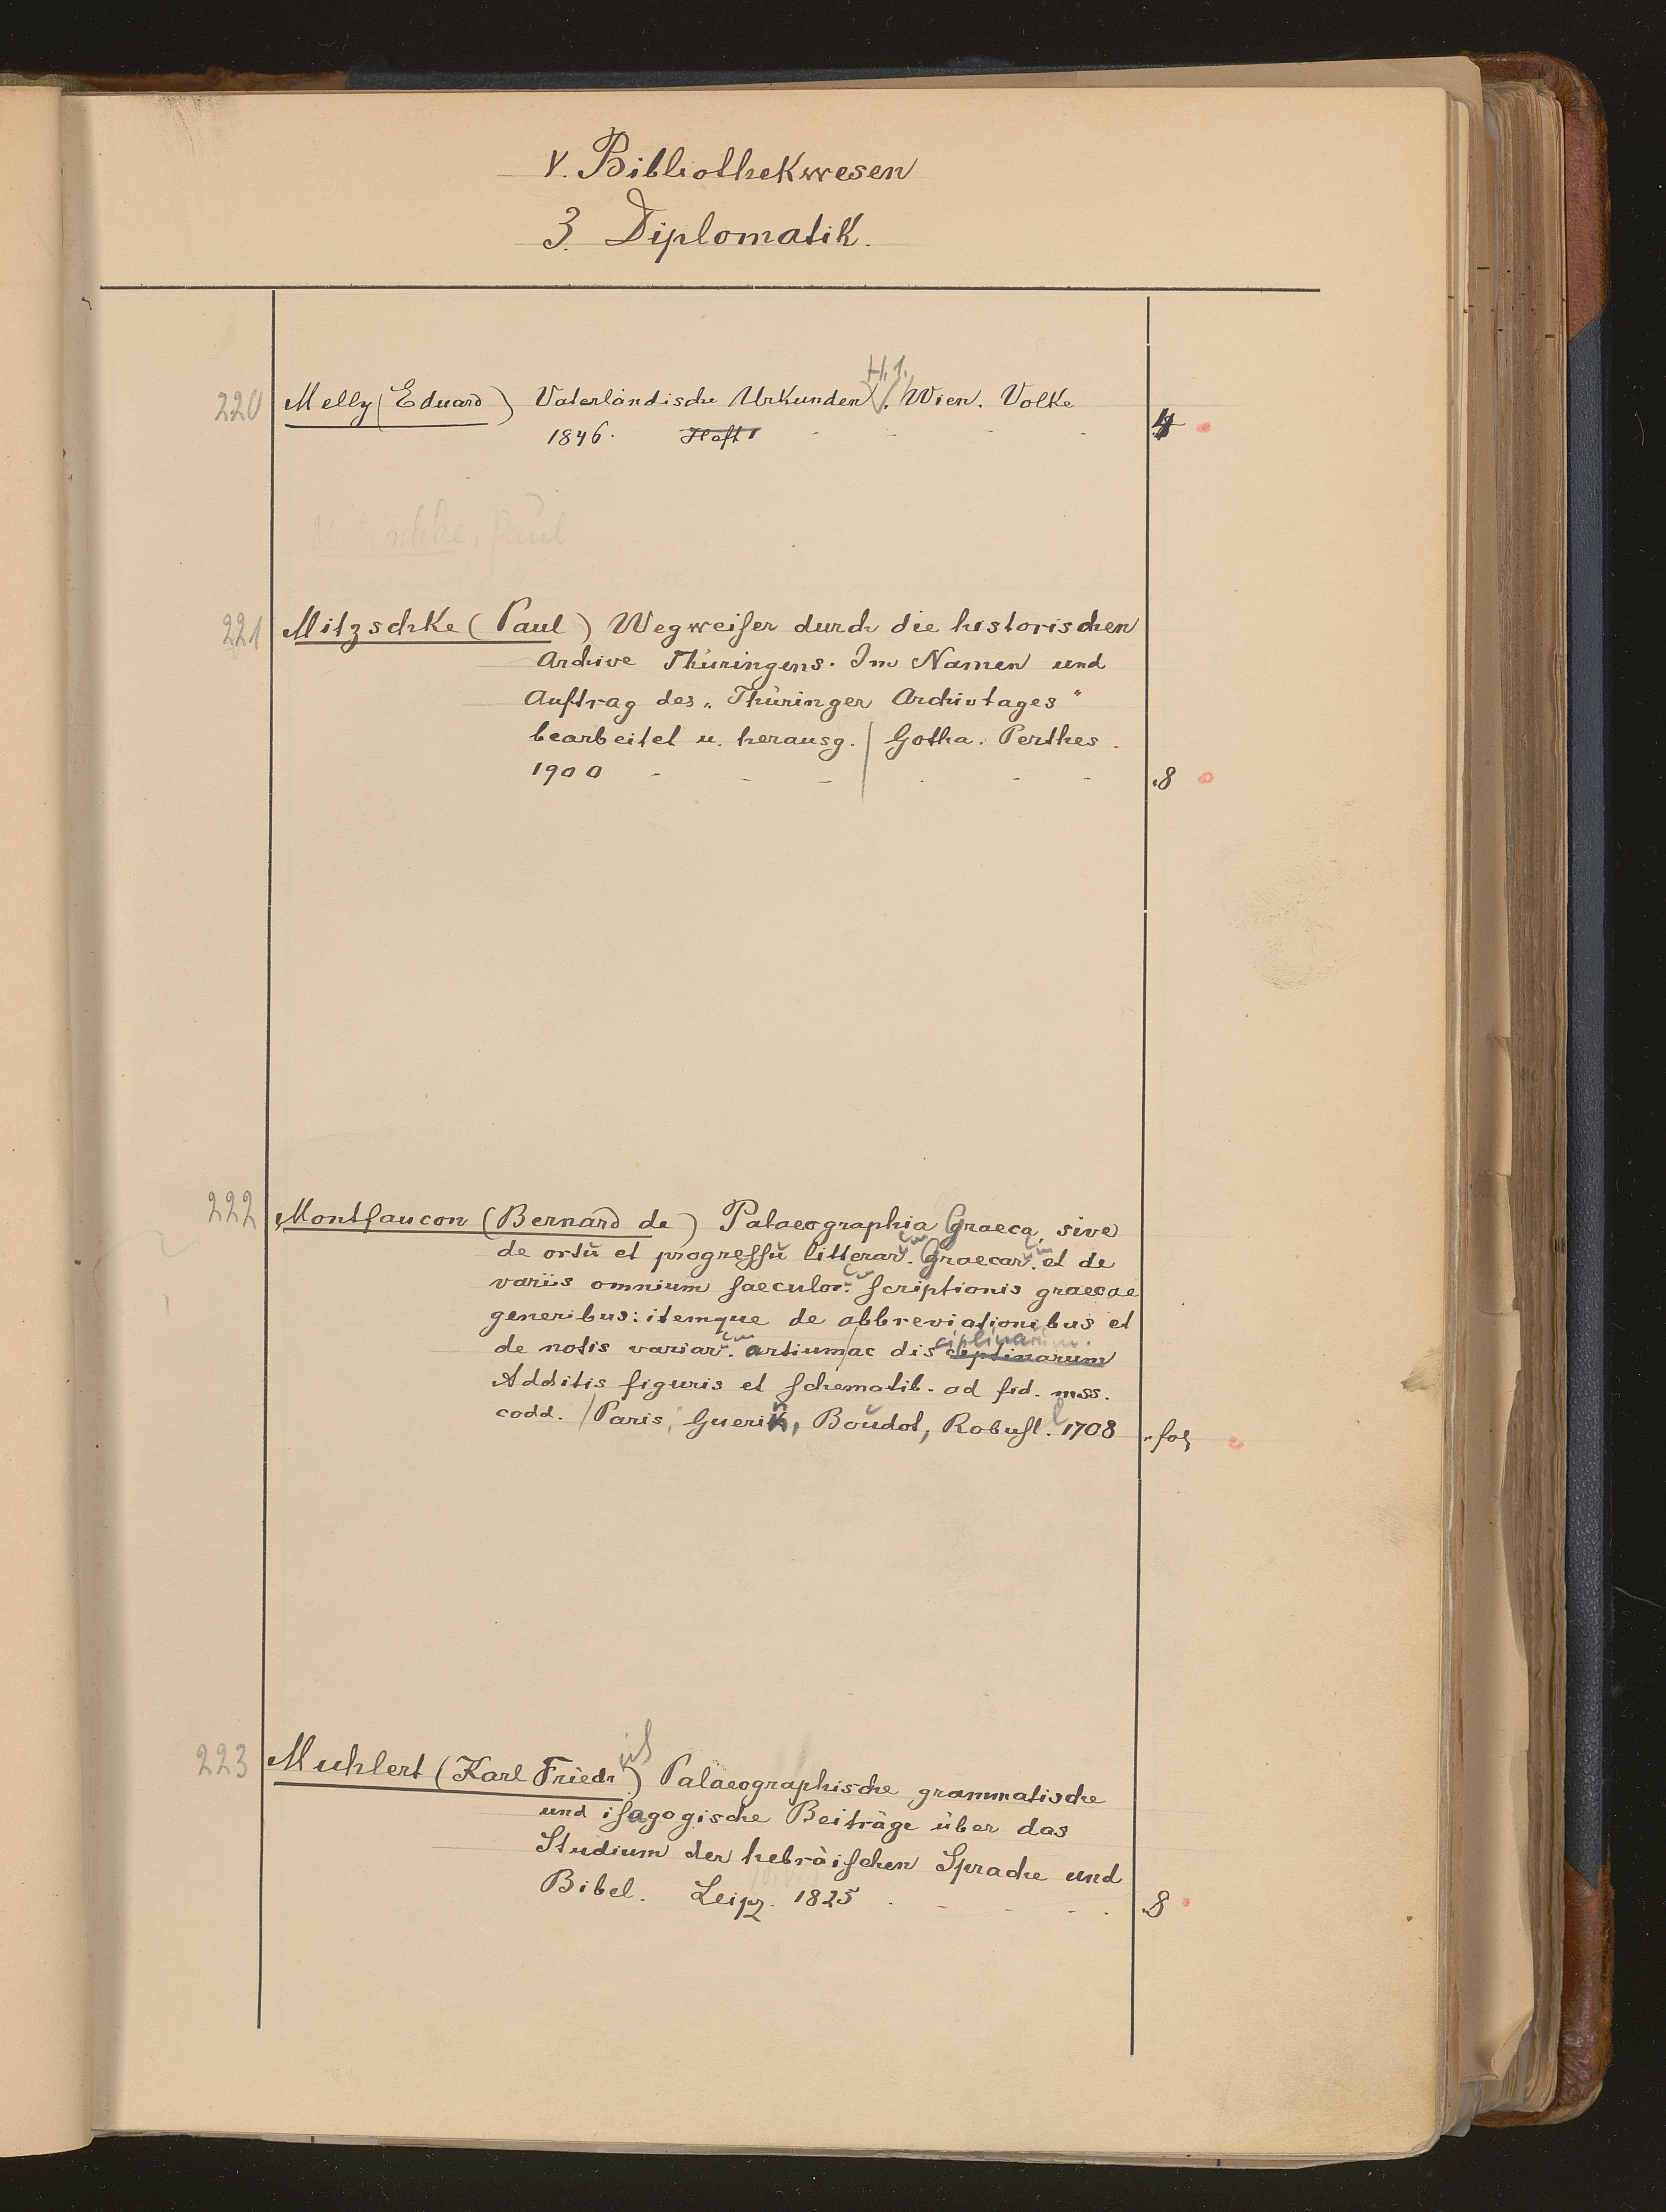 V. Bibliothekwesen
3. Diplomatik.
H. 1.
220 Melly (Eduard) Vaterländische Urkunden. Wien. Volke
1846. Heft 1 4
Mitzschke, Paul
221 Mitzschke (Paul) Wegweiſer durch die historischen
Archive Thüringens. Im Namen und
Auftrag des „Thüringer Archivtages"
bearbeitet u. herausg. / Gotha. Perthes.
1900 8
222 Montfaucon (Bernard de) Palaeographia Graeca, sive
de ortŭ et progreſſŭ litterarum Graecarum et de
variis omnium ſaeculorum ſcriptionis graecae
generibus: itemque de abbreviationibus et
ciplinarum.
de notis variarum artium ac dis ciptinarum
Additis figuris et ſchematib. ad fid. mss.
codd. / Paris, Guerin, Boŭdot, Robuſtl. 1708 fol
223 Muhlert (Karl Friedrich) Palaeographische grammatische
und iſagogische Beiträge über das
Studium der hebräiſchen Sprache und
Bibel. Leipz. 1825 8